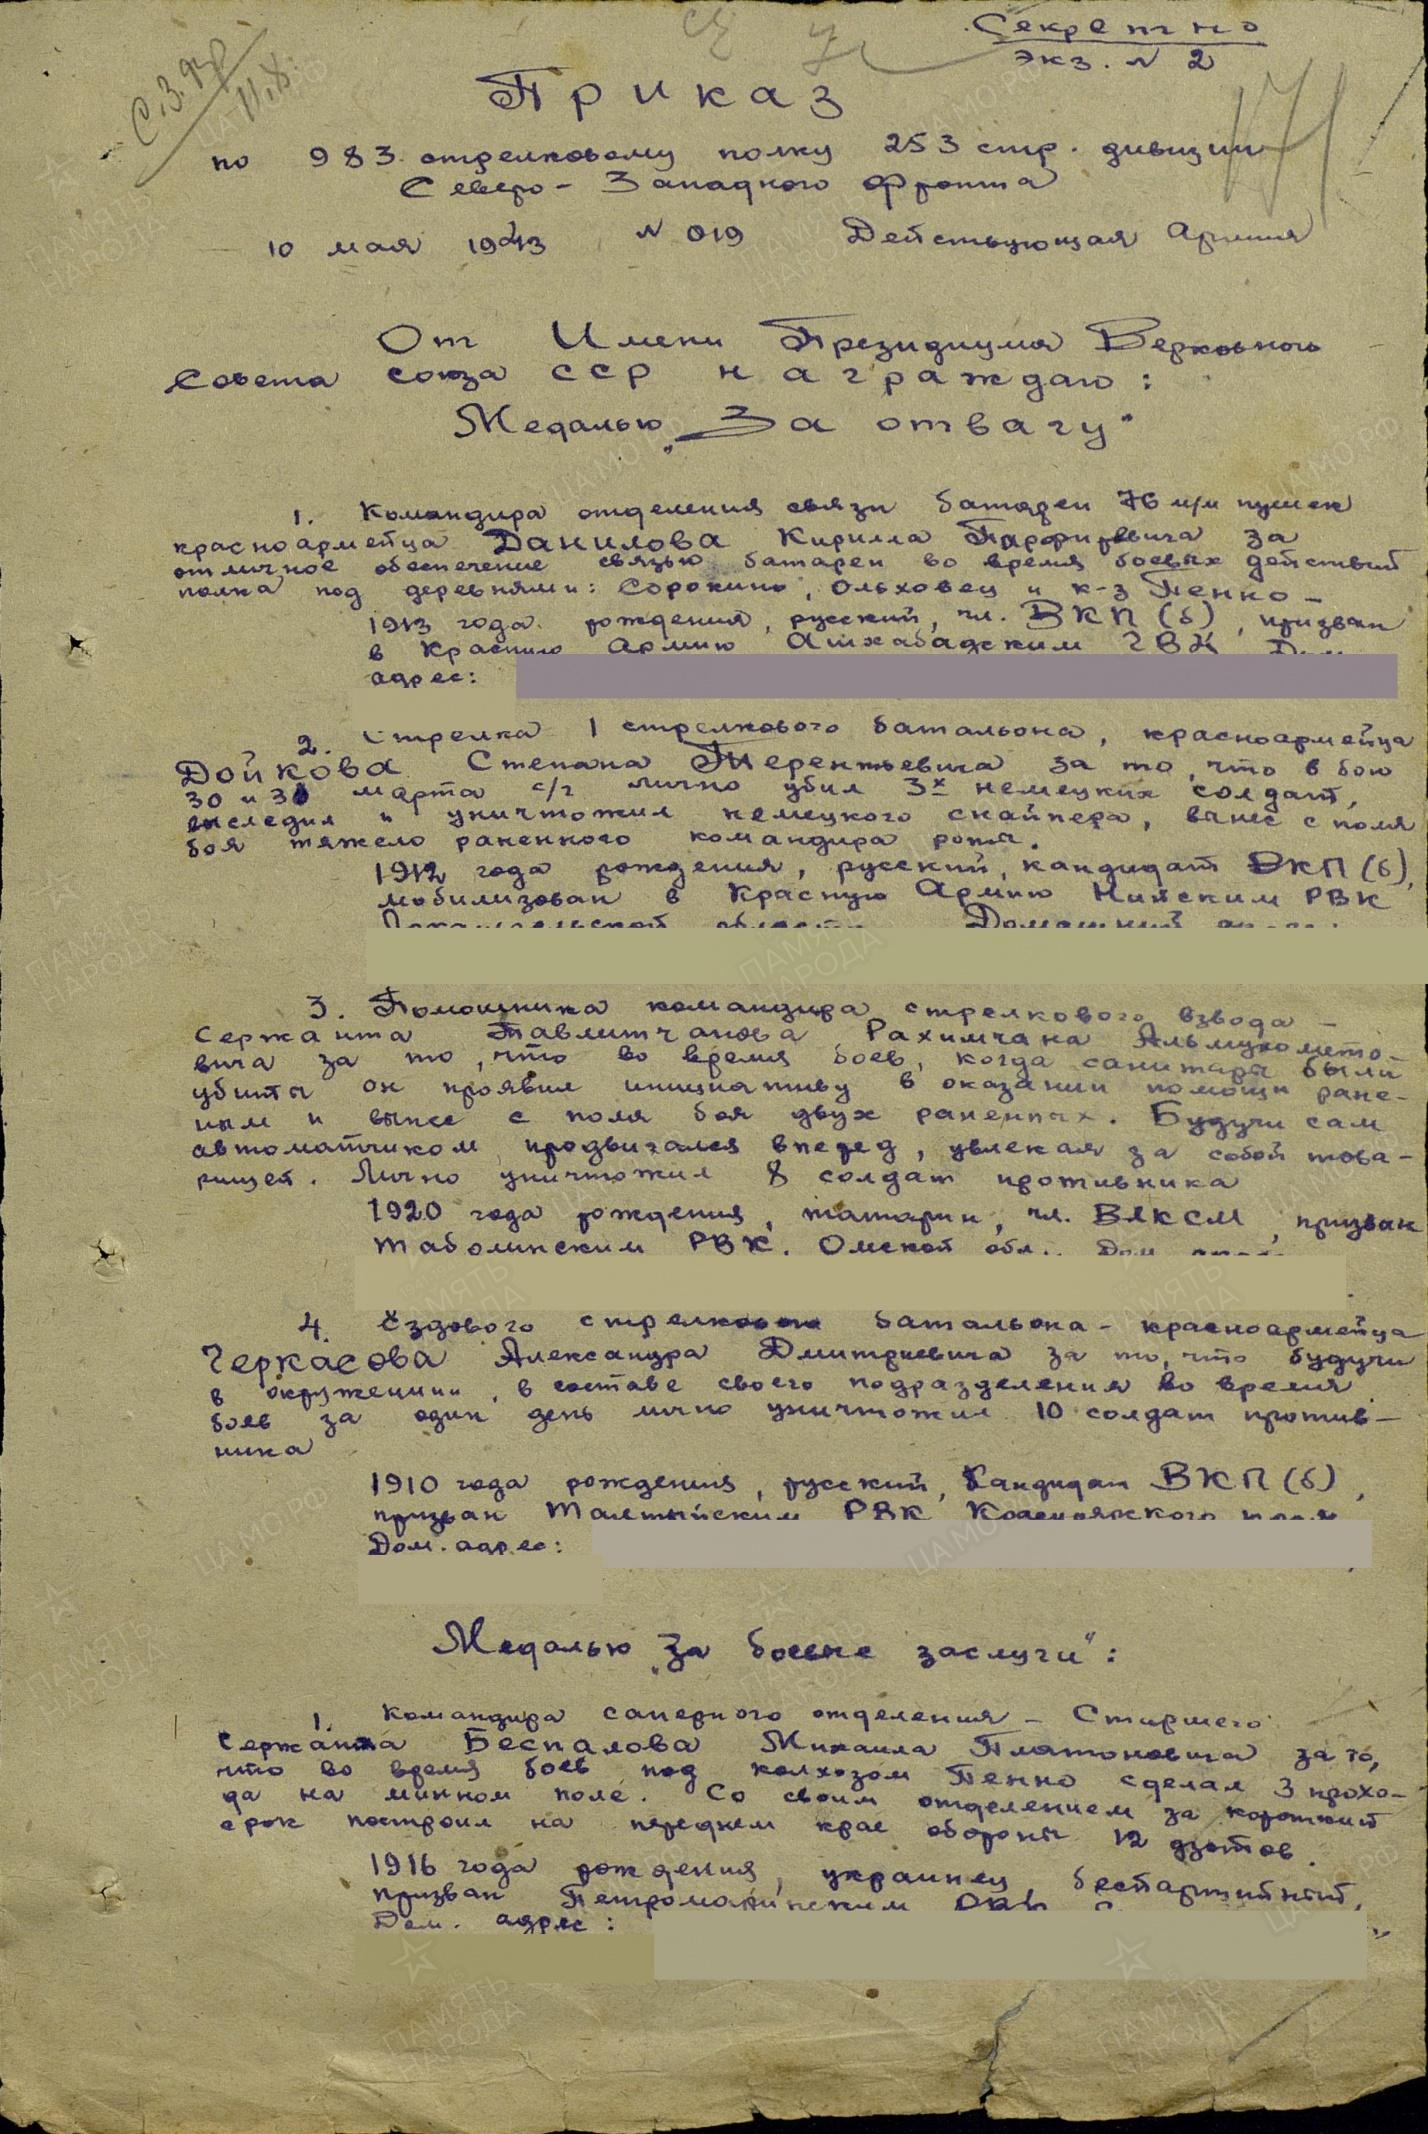 Секретно
экз. № 2
Приказ
по 983 стрелковому полку 253 стр. дивизии
Северо-Западного фронта
10 мая 1943 № 019 Действующая Армия
От Имени Президиума Верховного
Совета Союза ССР награждаю:
Медалью „За отвагу"
1. Командира отделения связи батареи 76 м/м пушек
красноармейца Данилова Кирилла за
отличное обеспечение связью батареи во время боевых действий
полка под деревнями: Сорокино, Ольховец и к-з Пенно -
1913 года рождения, русский, чл. ВКП(б), призван
в Красную Армию Ашхабадским ГВК Дом.
адрес:
2. Стрелка 1 стрелкового батальона, красноармейца
Дойкова Степана Терентьевича за то, что в бою
30 и 31 марта с/г лично убил 3х немецких солдат,
выследил и уничтожил немецкого снайпера, вынес с поля
боя тяжело раненного командира роты.
1912 года рождения, русский, кандидат ВКП(б),
мобилизован в Красную Армию РВК
Архангельской области Домашний адрес:
3. Помошника командира стрелкового взвода -
Сержанта Тавлитчанова Рахимчана
вича за то, что во время боев, когда санитары были
убиты он проявил инициативу в оказании помощи ране-
ным и вынес с поля боя двух раненных. Будучи сам
автоматчиком продвигался вперед, увлекая за собой това-
рищей. Лично уничтожил 8 солдат противника
1920 года рождения, татарин, чл. ВЛКСМ, призван
РВК. Омской обл. Дом. адрес:
4. Ездового стрелкового батальона - красноармейца
Черкасова Александра Дмитриевича за то, что будучи
в окружении, в составе своего подразделения во время
боев за один день лично уничтожил 10 солдат против-
ника
1910 года рождения, русский, Кандидат ВКП(б),
призван РВК Красноярского края
Дом. адрес:
Медалью „За боевые заслуги":
1. Командира саперного отделения - Старшего
Сержанта Беспалова Михаила Платоновича за то,
что во время боев под колхозом Пенно сделал 3 прохо-
да на минном поле. Со своим отделением за короткий
срок построил на переднем крае обороны 12 дзотов.
1916 года рождения, украинец, беспартийный,
призван РВК
Дом. адрес: